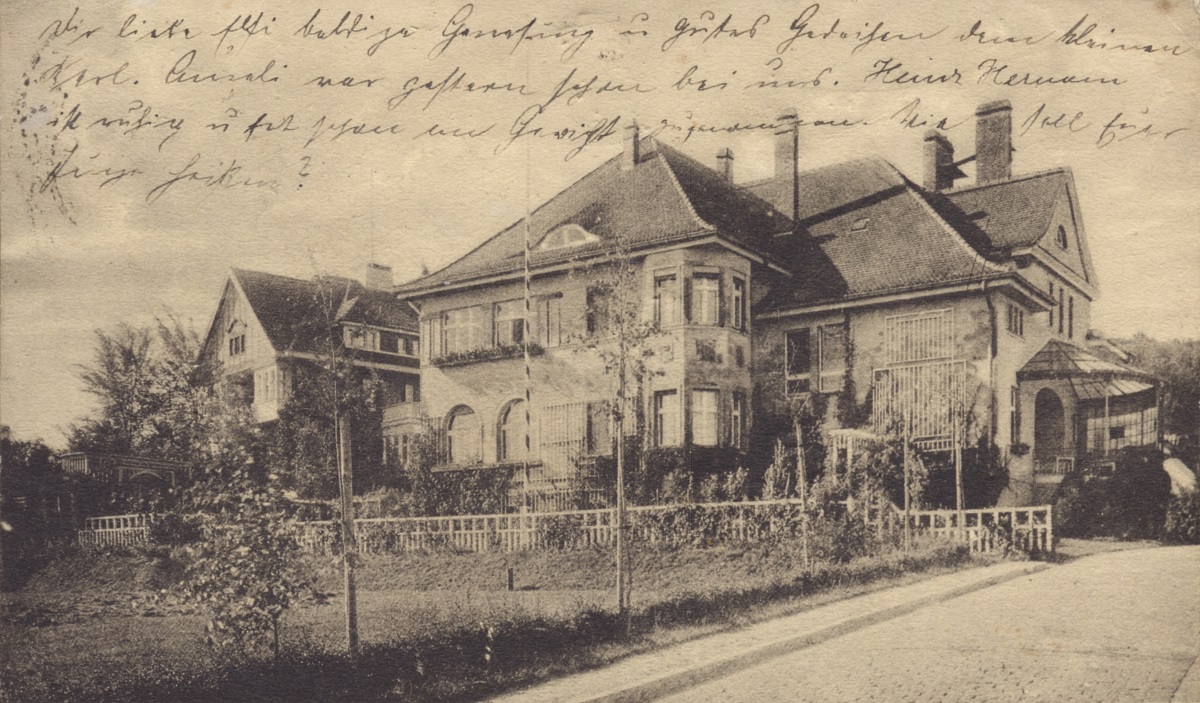 Dir liebe Elsi baldige Genesung u gutes Gedeihen dem kleinen
Karl. Anneli war gestern schon bei uns. Heinz Hermann
ist ruhig u hat schon an Gewicht zugenommen. Wie soll Euer
Junge heißen?